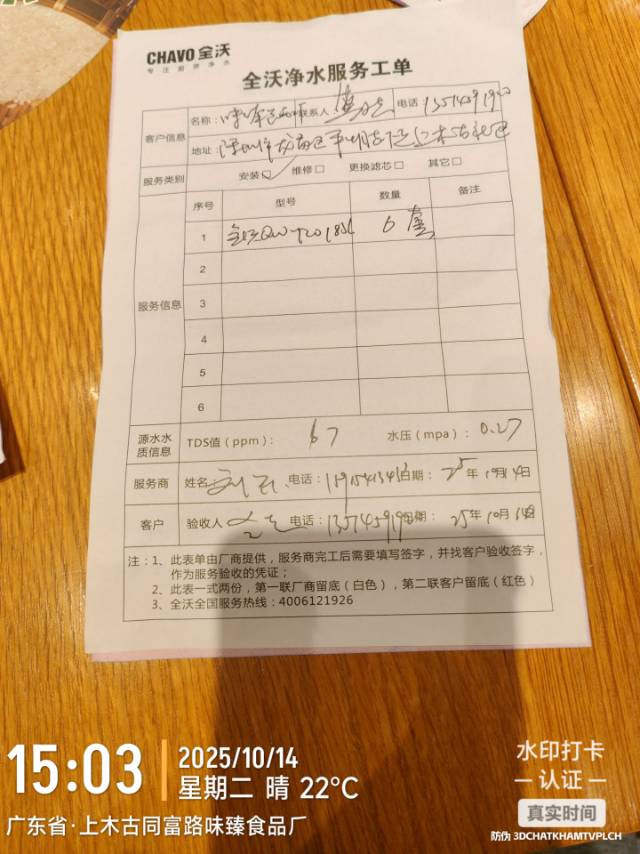 CHAVO 全沃
专注厨房净水
全沃净水服务工单
客户信息
名称: 联系人 电话
地址:
服务类别 安装☑ 维修□ 更换滤芯□ 其它□
服务信息
序号 型号 数量 备注
1 6套
2
3
4
5
6
源水水质信息 TDS值(ppm): 67 水压(mpa): 0.27
服务商 姓名 电话: 日期: 25年10月14日
客户 验收人 电话: 日期: 25年10月14日
注:1、此表单由厂商提供,服务商完工后需要填写签字,并找客户验收签字,
作为服务验收的凭证;
2、此表一式两份,第一联厂商留底(白色),第二联客户留底(红色)
3、全沃全国服务热线:4006121926
15:03
2025/10/14
星期二 晴 22°C
广东省·上木古同富路味臻食品厂
水印打卡
认证
真实时间
防伪 3DCHATKHAMTVPLCH